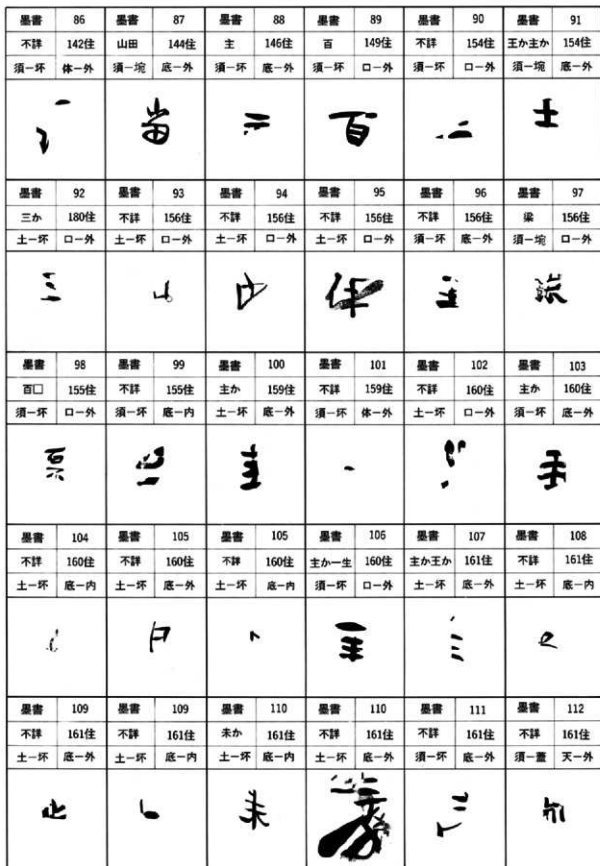 墨書 86 墨書 87 墨書 88 墨書 89 墨書 90 墨書 91
不詳 142住 山田 144住 主 146住 百 149住 不詳 154住 王か主か 154住
須一坏 体一外 須一埦 底一外 須一坏 底一外 須一坏 口一外 須一坏 口一外 須一埦 底一外
墨書 92 墨書 93 墨書 94 墨書 95 墨書 96 墨書 97
三か 180住 不詳 156住 不詳 156住 不詳 156住 不詳 156住 梁 156住
土一坏 口一外 土一坏 口一外 土一坏 口一外 土一坏 口一外 須一坏 底一外 須一埦 口一外
墨書 98 墨書 99 墨書 100 墨書 101 墨書 102 墨書 103
百□ 155住 不詳 155住 主か 159住 不詳 159住 不詳 160住 主か 160住
須一坏 口一外 須一坏 底一内 土一坏 底一外 須一坏 体一外 土一坏 口一外 須一坏 底一外
墨書 104 墨書 105 墨書 105 墨書 106 墨書 107 墨書 108
不詳 160住 不詳 160住 不詳 160住 主か一生 160住 主か王か 161住 不詳 161住
土一坏 底一内 土一坏 底一外 土一坏 底一内 須一坏 口一外 土一坏 底一外 土一坏 底一内
墨書 109 墨書 109 墨書 110 墨書 110 墨書 111 墨書 112
不詳 161住 不詳 161住 未か 161住 不詳 161住 不詳 161住 不詳 161住
土一坏 底一外 土一坏 底一内 土一坏 底一内 土一坏 底一外 須一坏 底一外 須一蓋 天一外